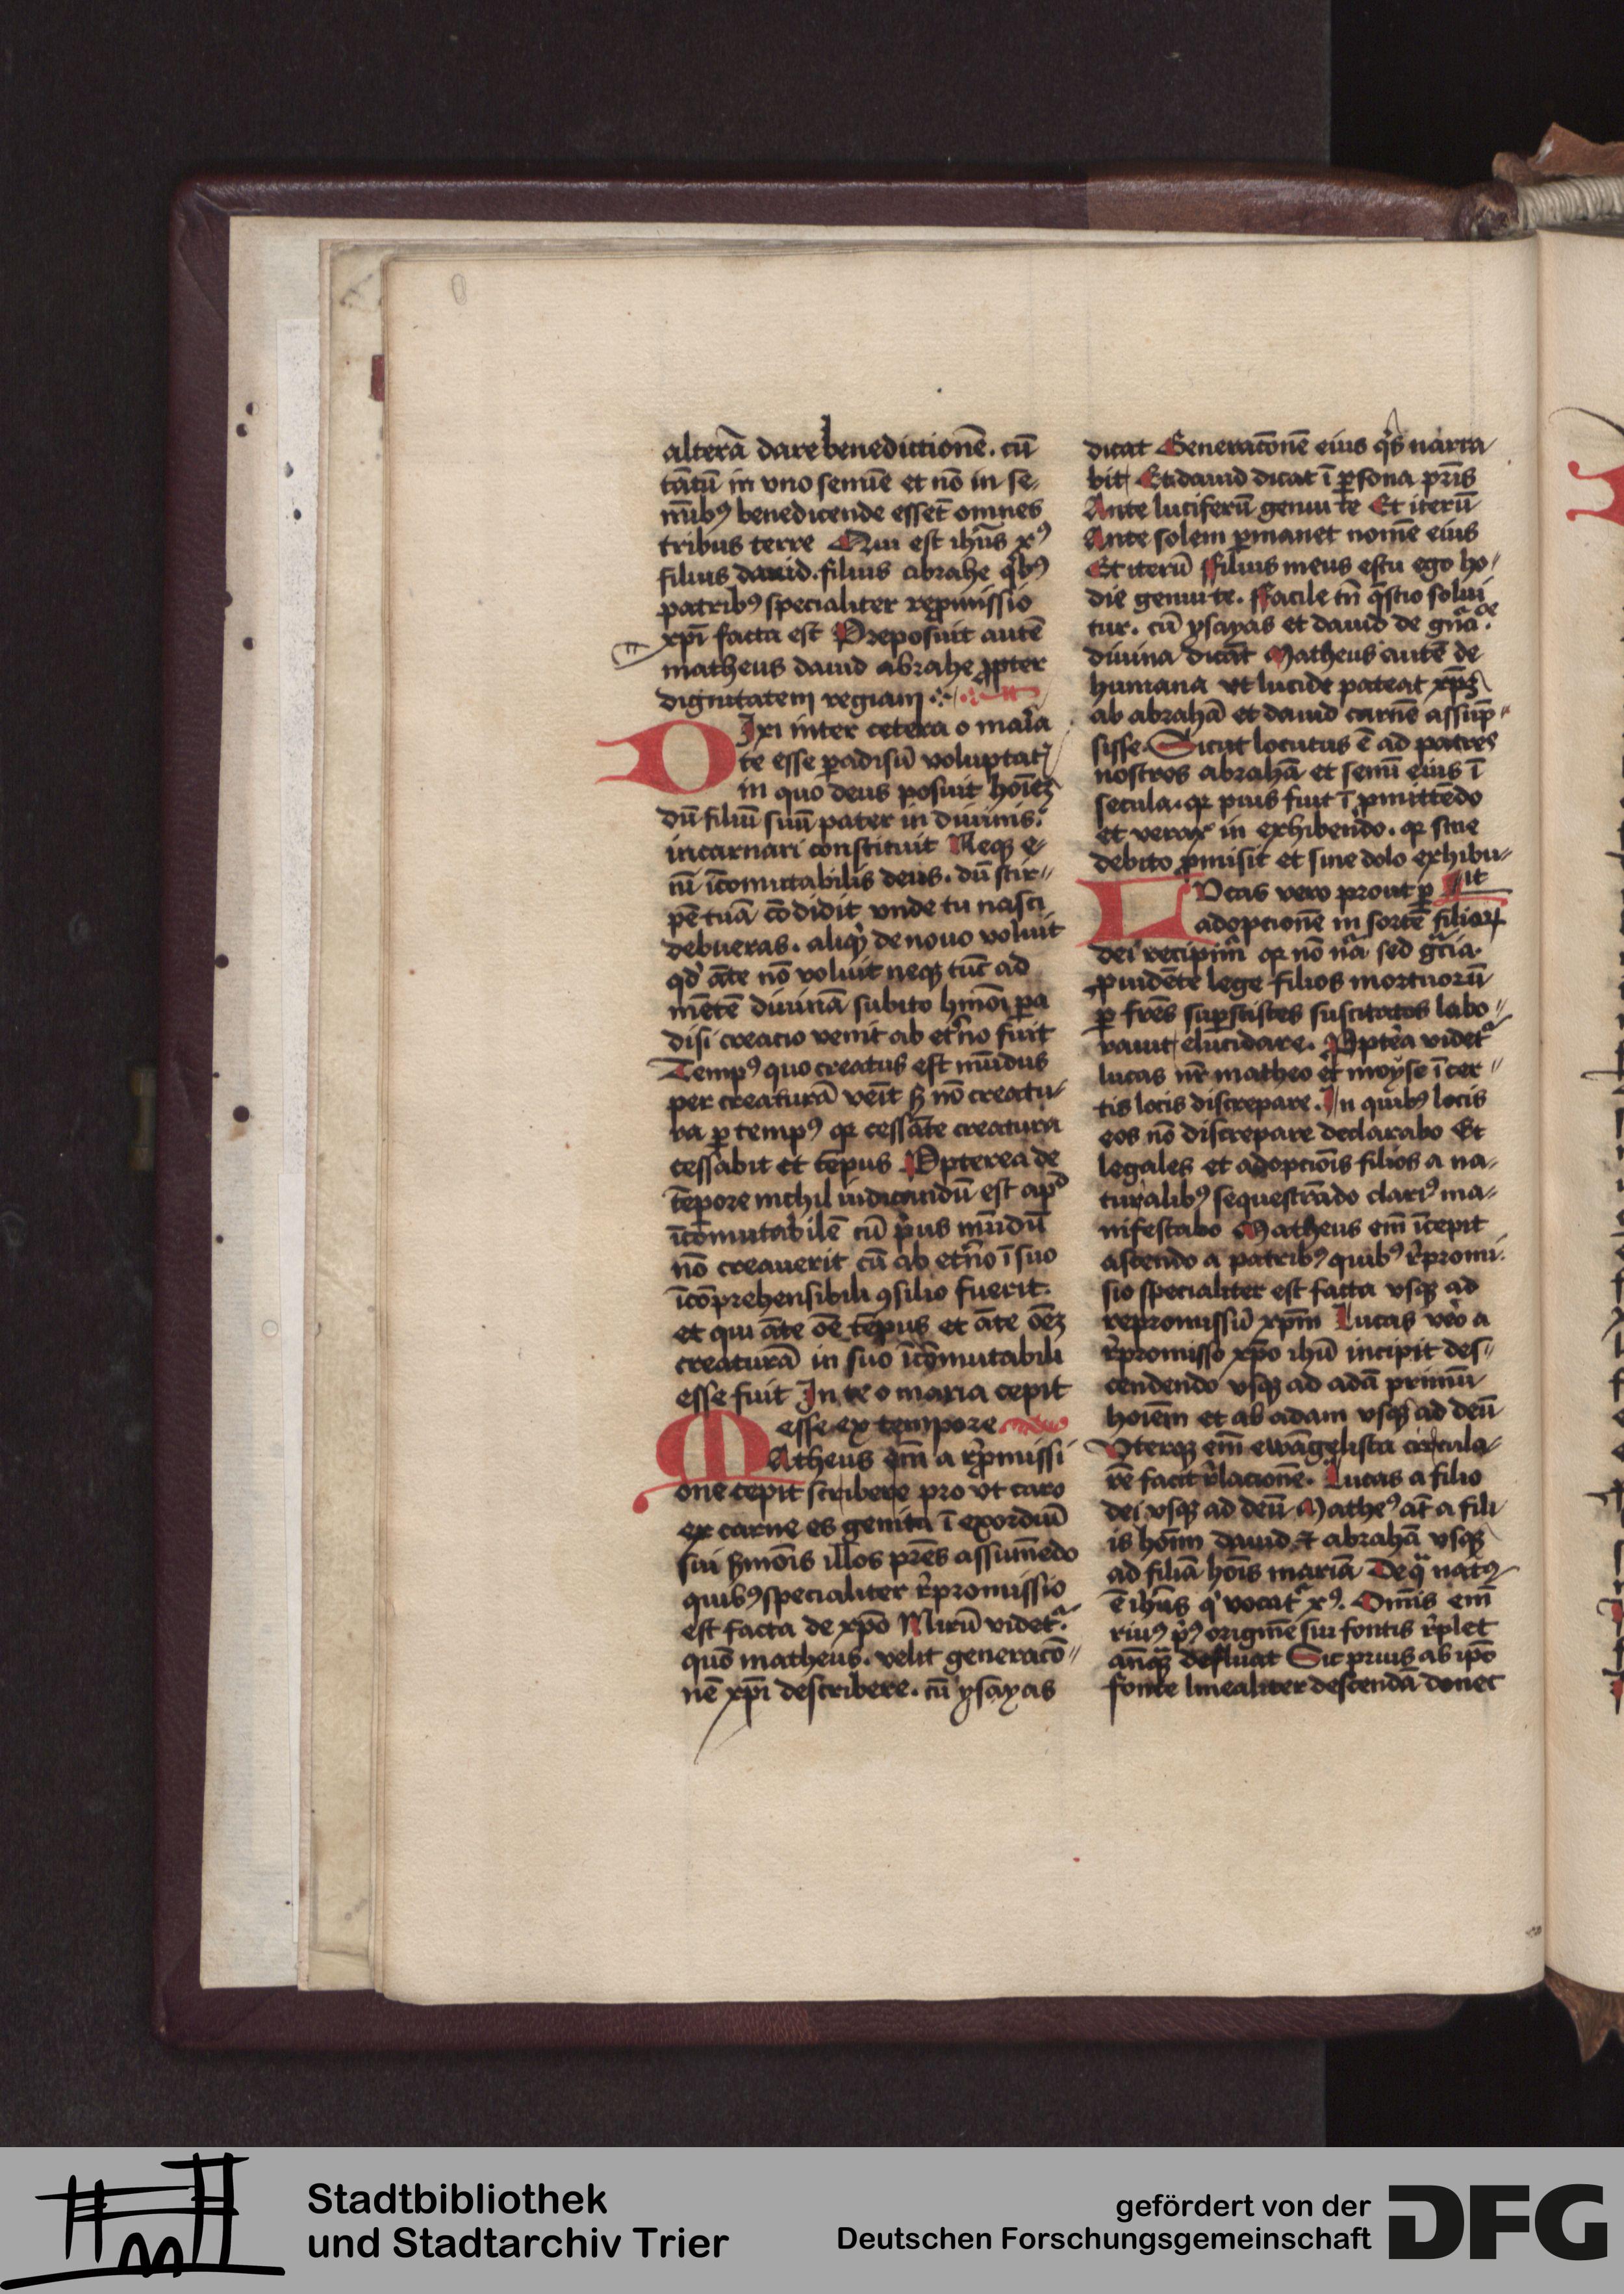 alterā dare benedictionē. cū
tātū in vno semīe et nō in se-
mībꝯ benedicende essēt omnes
tribus terre Qui est ihūs xꝯ
filius dauid. filius abrahe qͥbꝯ
patribꝯ specialiter repmissio
xpī facta est Preposuit autē
matheus dauid abrahe ꝓpter
dignitatem regiam
DIxi inter cetera o maͥa
te esse ꝑadisū voluptatꝭ
in quo deus posuit hoīeꝫ
dū filiū suū pater in diuinis
incarnari constituit Neqꝫ e-
nī īcōmutabilis deus. dū stir-
pē tuā cōdidit vnde tu nasci
debueras. aliqͥd de nouo voluit
qd āte nō voluit neqꝫ tūc ad
mētē diuinā subito hmōi ꝑa
disi creacio venit ab etͥno fuit
Tempꝯ quo creatus est mūdus
per creaturā venīt sꝫ nō creatu-
ra ꝑ tempꝯ qꝛ cessāte creatura
cessabit et tēpus Ppterea de
tēpore nichil iudicandū est apd
īcōmutabilē cū prͥus mūdū
nō creauerit cū ab etͥno ī suo
īcōprehensibili ꝯsilio fuerit.
et qui āte oē tēpus et āte oēꝫ
creaturā in suo īcōmutabili
esse fuit In te o maria cepit
esse ex tempore
MAtheus em̄ a rͤpmissi
one cepit scribere pro vt caro
ex carne es genita ī exordiū
sui sͤmōis illos prēs assumēdo
quibꝯ specialiter rͤpromissio
est facta de xpō Mirū videtͬ
quō matheus. velit generacō-
nē xpī describere. cū ysayas
dicat Generacōnē eius qͥs narra
bit Et dauid dicat ī ꝑsona prīs
Ante luciferū genui te Et iterū
Ante solem ꝑmanet nomē eius
Et iterū Ffilius meus es tu ego ho-
die genui te. Ffacile tn̄ qͣstio solui
tur. cū ysayas et dauid de gnͣcōe
diuina dicāt Matheus autē de
humana vt lucide pateat xpꝫ
ab abrahā et dauid carnē assūp-
sisse. Sicut locutus ē ad patres
nostros abrahā et semī eius ī
secula. qꝛ pius fuit ī pmittēdo
et verax in exhibendo. qꝛ sine
debito ꝓmisit et sine dolo exhibu-
it
LVcas vero prout ꝑ
adopcionē in sortē filioꝝ
dei recipimͬ qꝛ nō nͣa sed grͣcia.
ꝓuidēte lege filios mortuorū
ꝑ frēs suꝑstites suscitatos labo-
rauit elucidare. Ppteͤa videtͬ
lucas nr̄ matheo et moyse ī cer-
tis locis discrepare. In quibꝯ locis
eos nō discrepare declarabo Et
legales et adopcōis filios a na-
turalibꝯ sequestrādo clariꝯ ma-
nifestabo Matheus em̄ īcepit
ascendo a patribꝯ quibꝯ rͤpromi-
sio specialiter est facta vsqꝫ ad
repromissū xpm̄ Lucas veͦo a
rͤpromisso xpō ihū incipit des-
cendendo vsqꝫ ad adā primū
hoīem et ab adam vsqꝫ ad deū
Vterqꝫ em̄ ewāgelista circula-
rē facit rͤlacionē. Lucas a filio
dei vsqꝫ ad deū Matheꝯ āt a fili
is hoīm dauid et abrahā vsqꝫ
ad filiā hoīs mariā De qͣ natꝯ
ē ihūs qͥ vocatͬ xꝯ. Omīs em̄
riuꝯ pͥꝯ originē sui fontis rͤplet
anteqͣꝫ defluat Sic prius ab ipō
fonte linealiter descendā donec
Stadtbibliothek
und Stadtarchiv Trier
gefördert von der
Deutschen Forschungsgemeinschaft
DFG